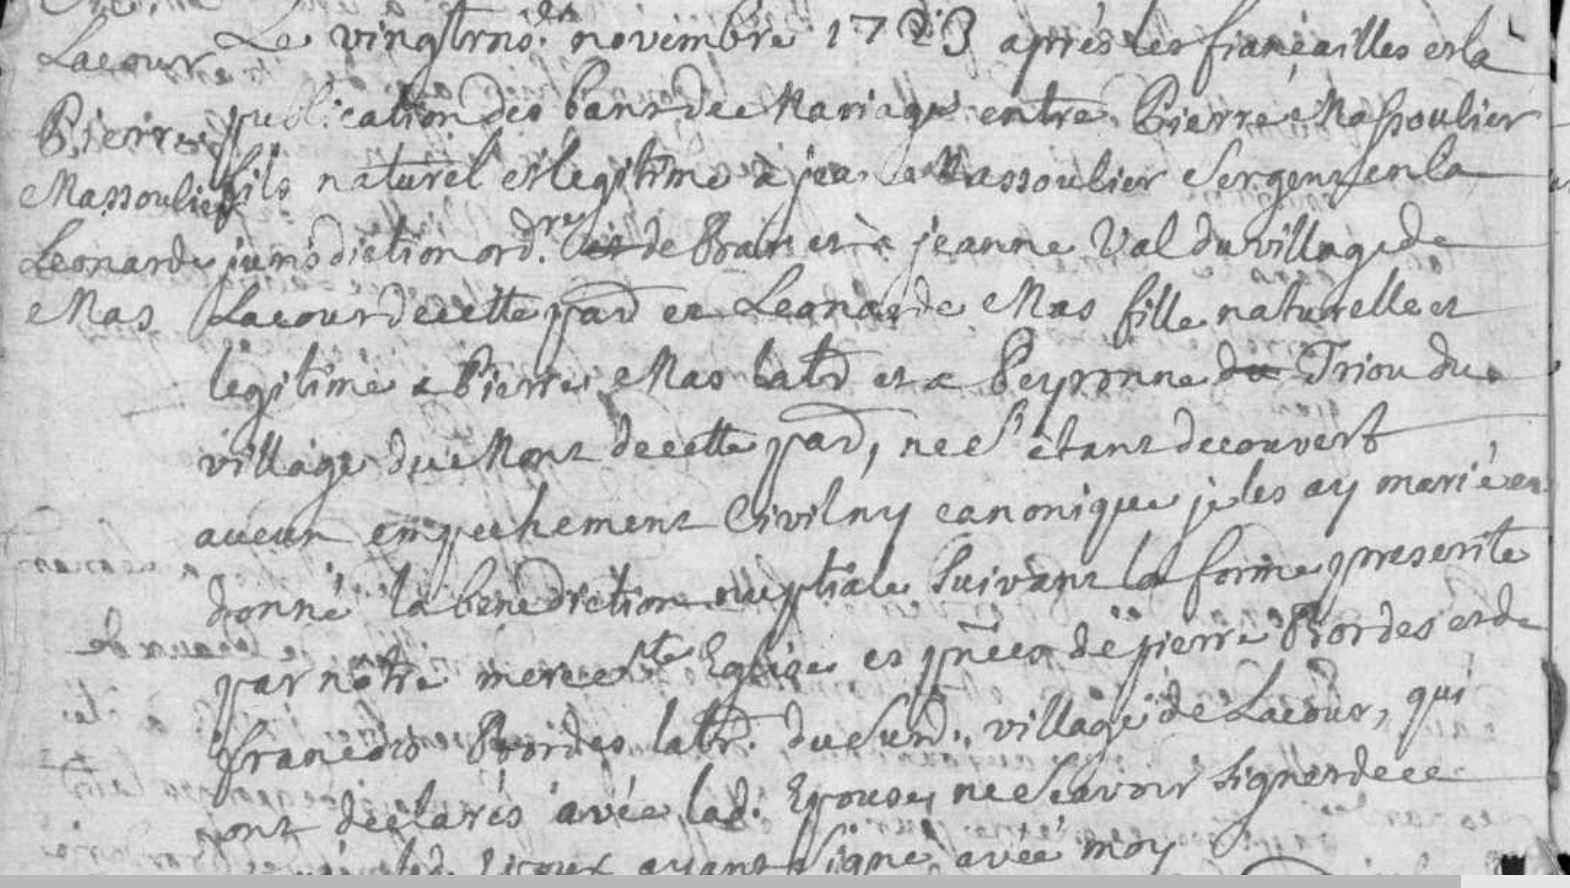 Lacour
Pierre
Massoulier
Leonarde
Mas
Le vingt trois. novembre 1723 aprés les fiançailles et la
publication des bans de Mariage entre Pierre Massoulier
fils naturel et legitime a jean Massoulier Sergent en la
jurisdiction ord.re de et a jeanne Val du village de
Lacour de cette par et Leonarde Mas fille naturelle et
legitime a Pierre Mas labr et a Peyronne du Triou du
village du Mont de cette par, ne S'étant decouvert
aucun empechement Civil ny canonique je les ay marié et
donné la benediction nuptiale Suivant la forme prescrite
par nôtre mere Ste Eglise es pñces de pierre Bordes et de
francois Bordes labr. du Susd. village de Lacour, qui
ont declarés avéc lad. Epouse, ne Scavoir Signer de ce
led. Epoux ayant Signé avéc moy